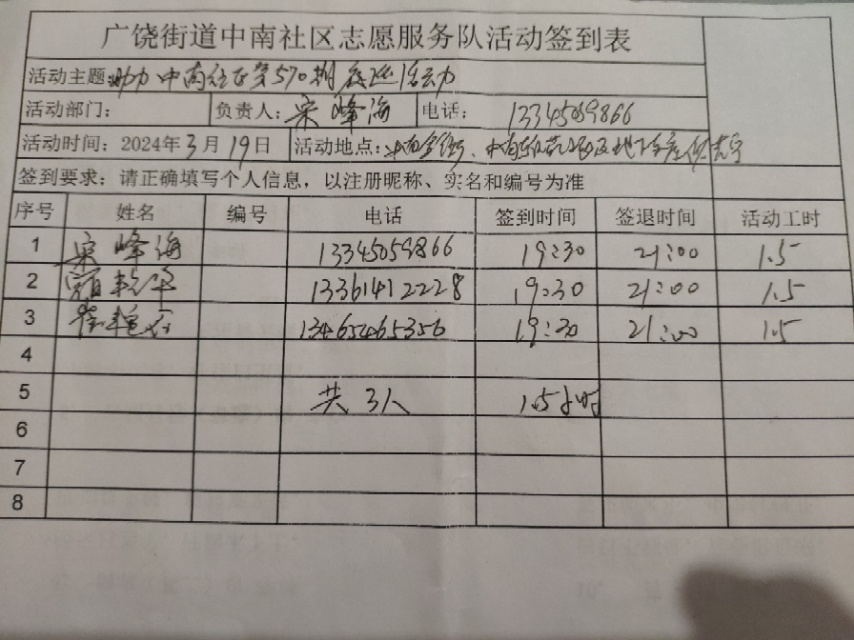 广饶街道中南社区志愿服务队活动签到表
活动主题:助力中南社区第570期夜巡活动
活动部门: 负责人:宋峰海 电话: 13345059866
活动时间:2024年3月19日 活动地点:中南
签到要求:请正确填写个人信息,以注册昵称、实名和编号为准
序号 姓名 编号 电话 签到时间 签退时间 活动工时
1 宋峰海 13345059866 19:30 21:00 1.5
2 13361412228 19:30 21:00 1.5
3 13465465356 19:30 21:00 1.5
4
5 共3人 1.5小时
6
7
8